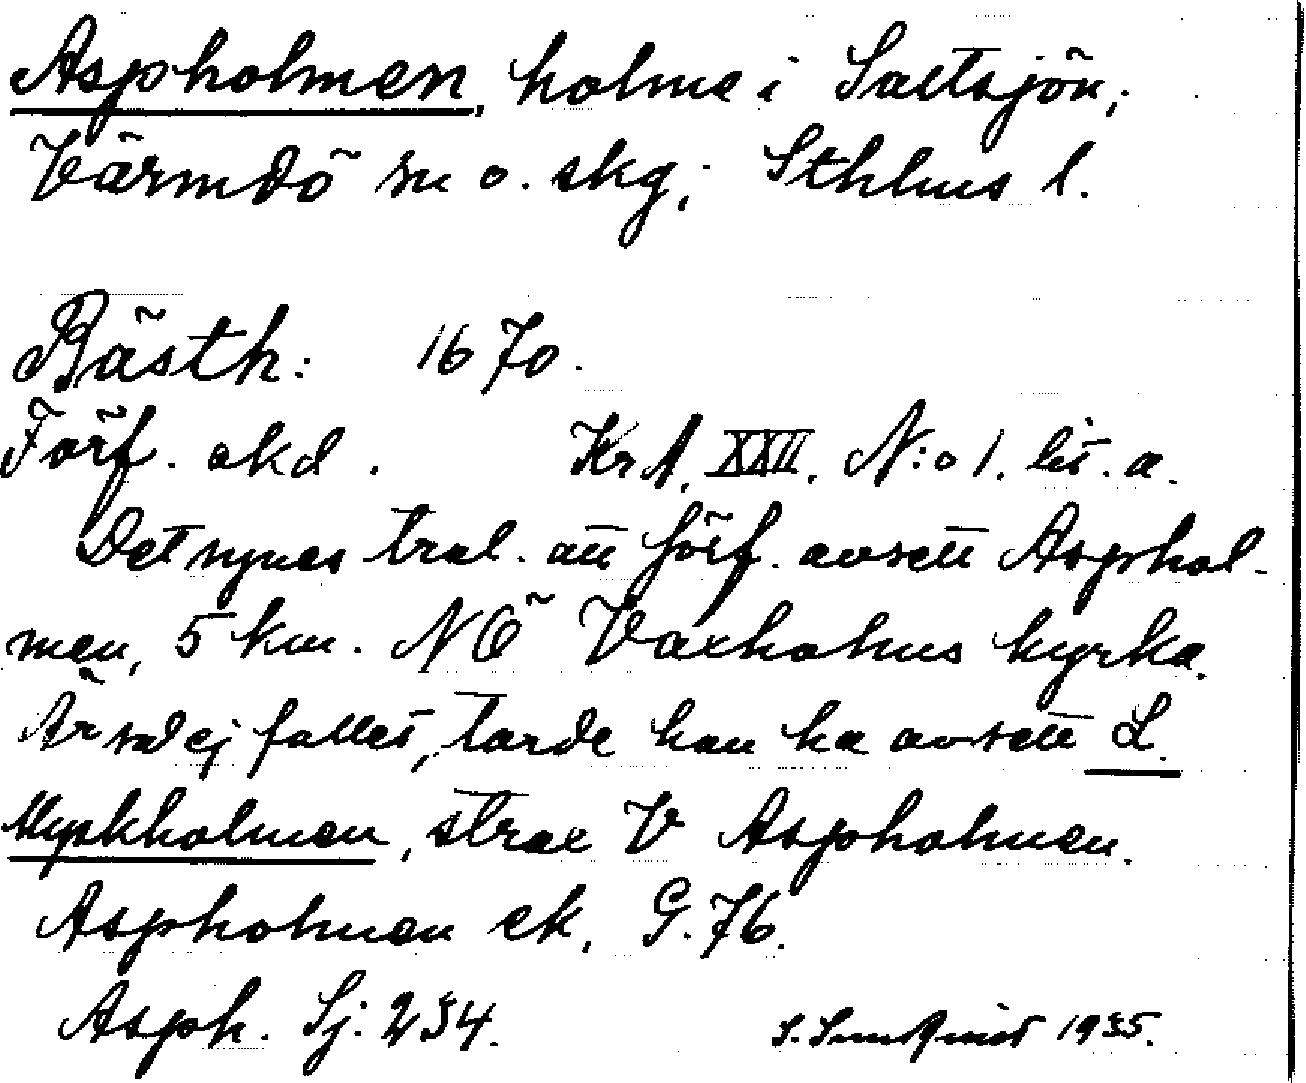 Aspholmen, holme i Saltsjön,
Värmdö sn o. skg, Sthlms l.
Bästh: 1670.
Förf. okd. KrA. XXII. N:o 1. lit. a.
Det synes trol. att förf. avsett Asphol-
men, 5 km. NÖ Vaxholms kyrka.
Är så ej fallet, torde han ha avsett L.
Myskholmen, strax V Aspholmen.
Aspholmen ek. G. 76.
Asph. Sj. 234. 1935.